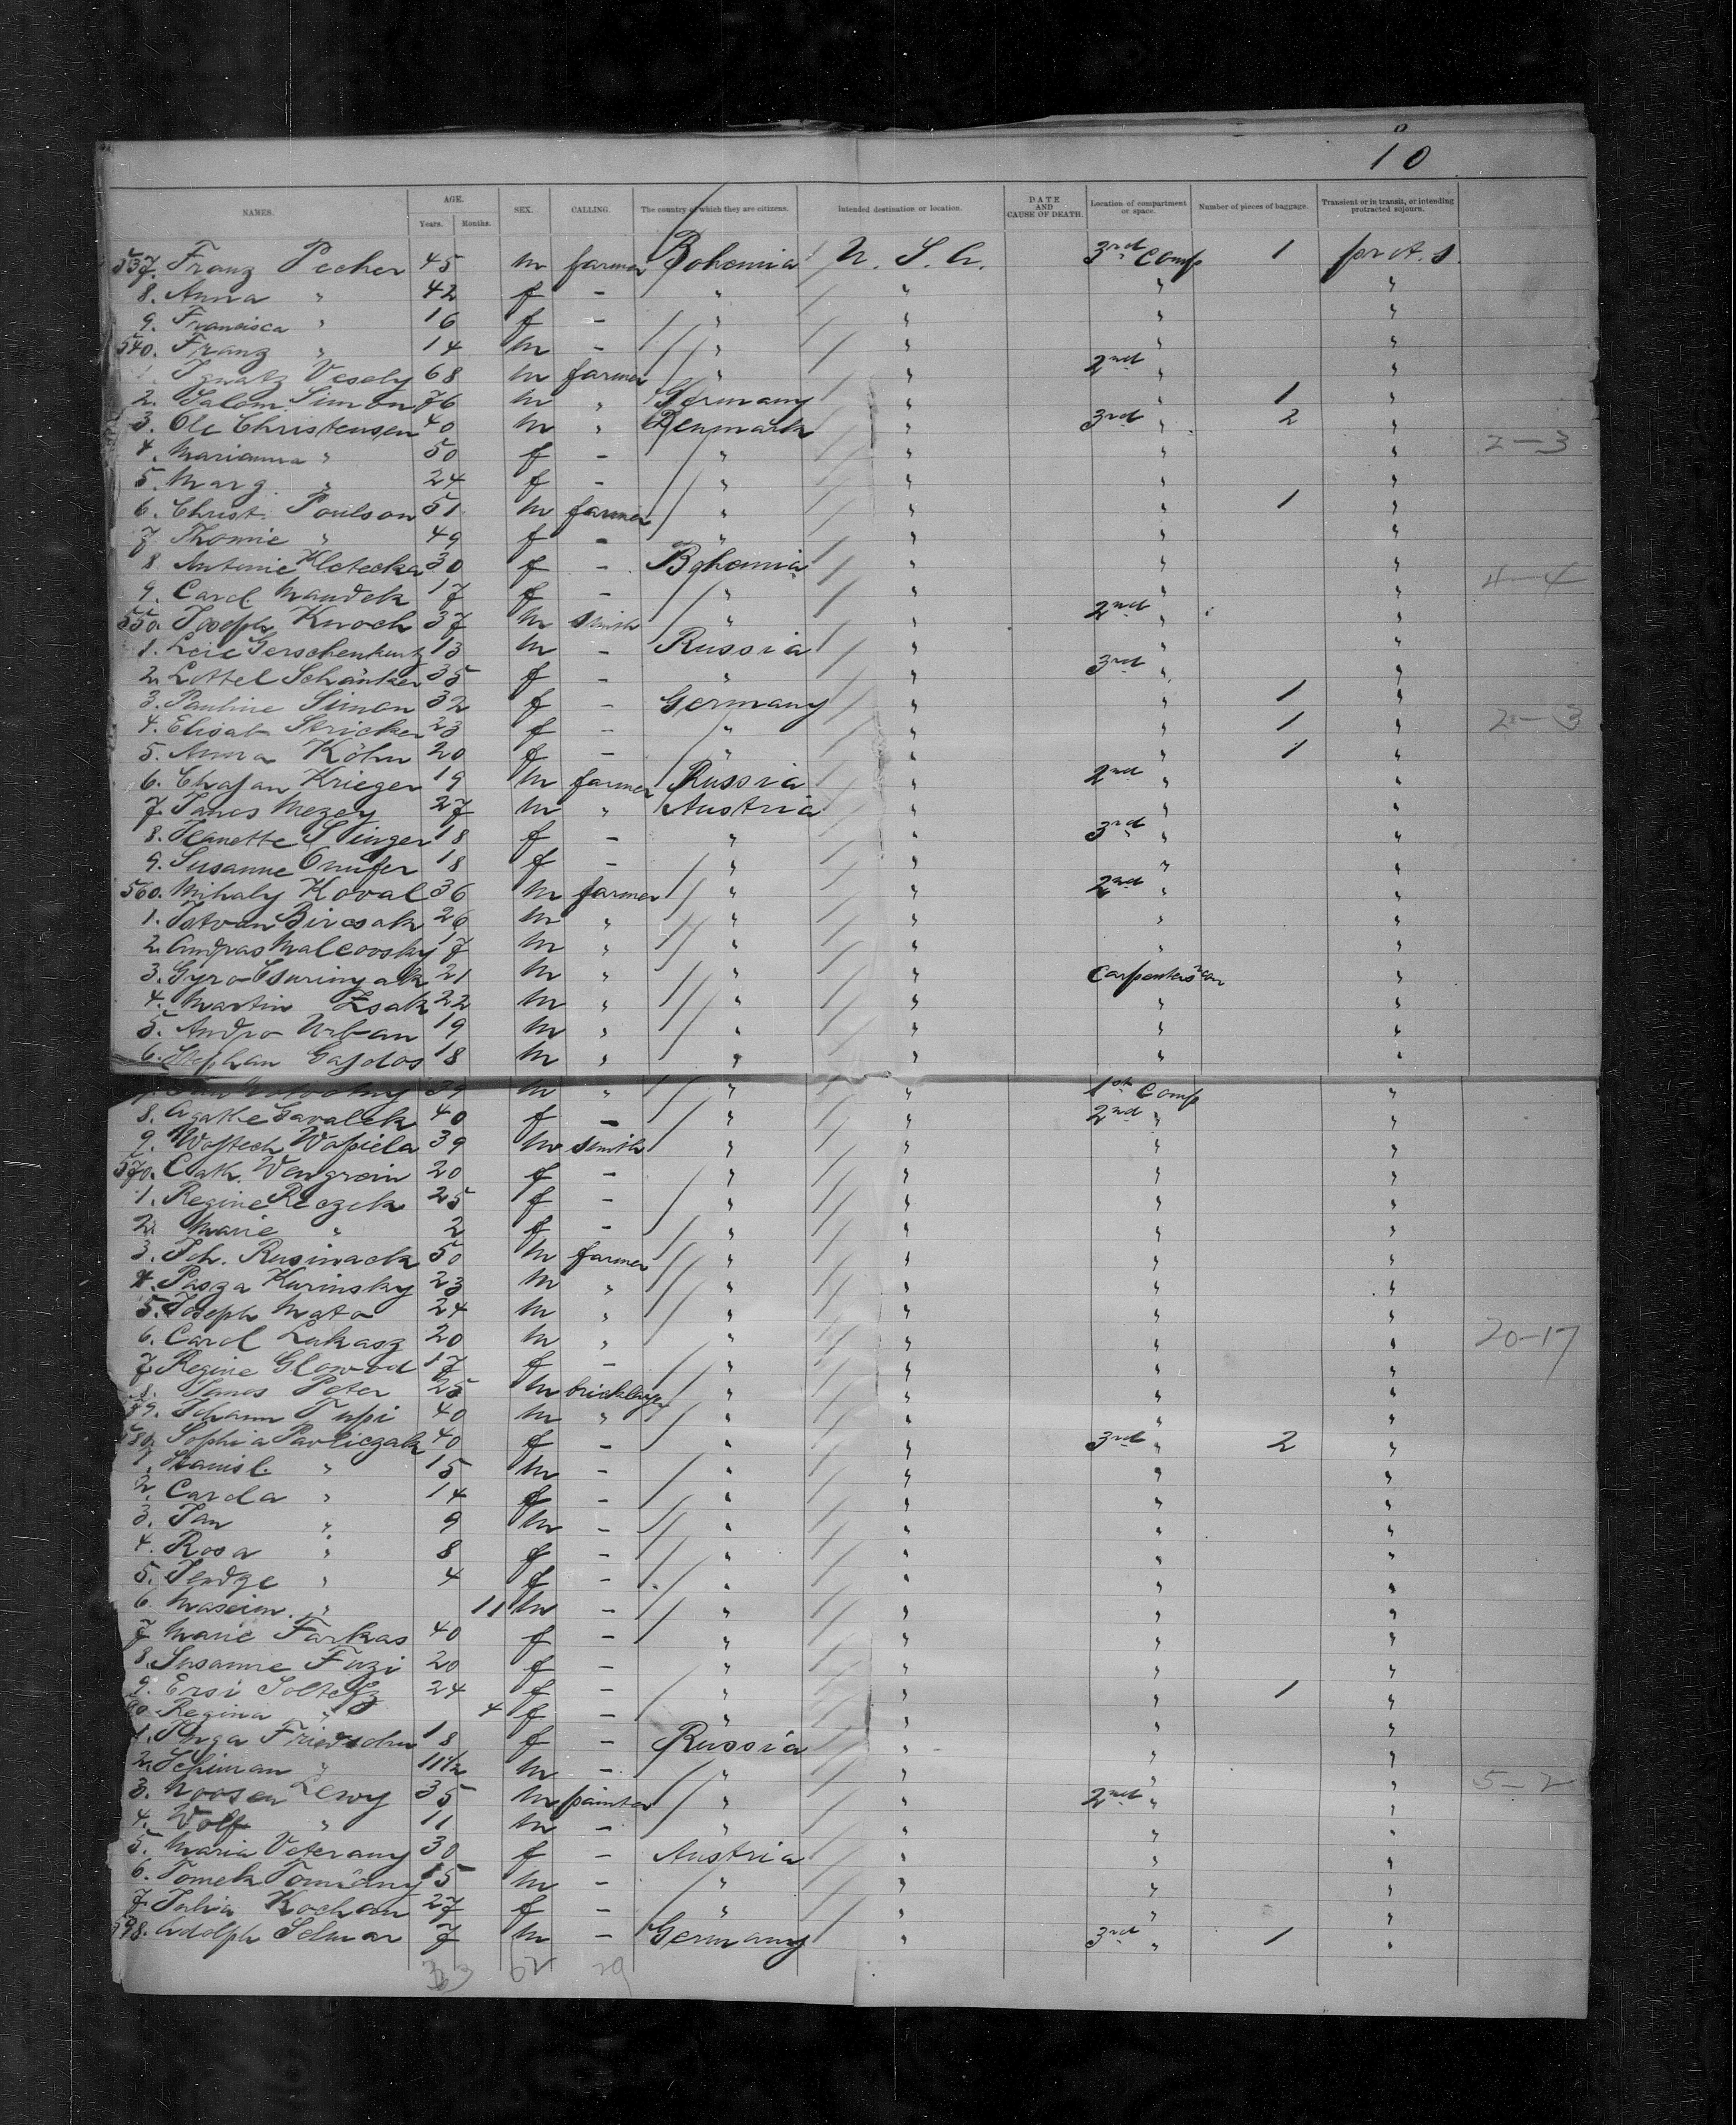 10
NAMES. AGE. Years. Months. SEX. CALLING. The country of which they are citizens. Intended destination or location. DATE AND CAUSE OF DEATH. Location of compartment or space. Number of pieces of baggage. Transient or in transit, or intending protracted sojourn.
537. Franz Pecher 45 m farmer Bohemia U. S. A. 3rd Comp 1 prot. s.
8. Anna " 42 f - " " " "
9. Francisca " 16 f - " " " "
540. Franz " 14 m - " " " "
Ignatz Vesely 68 m farmer " " 2nd " "
2. Salom. Simon 76 m " Germany " " 1 "
3. Ole Christensen 40 m " Denmark " 3rd " 2 "
4. Marianna " 50 f - " " " " 2-3
5. Marg. " 24 f - " " " "
6. Christ. Poulson 51 m farmer " " " 1 "
7 Thomie " 49 f - " " " "
8. Antonie Kletecka 30 f - Bohemia " " "
9. Carol. Maudek 17 f - " " " " 4-4
550. Joseph Knoch 37 m smith " " 2nd " "
1. Leie Gerschenkurtz 13 m - Russia " " "
2. Lottel Schänker 35 f - " " 3rd " "
3. Pauline Simon 32 f - Germany " " 1 "
4. Elisab Stricker 23 f - " " " 1 " 2-3
5. Anna Köhn 20 f - " " " 1 "
6. Chajan Krieger 19 m farmer Russia " 2nd " "
7. Janos Mezey 27 m " Austria " " "
8. Jeanette Singer 18 f - " " 3rd " "
9. Susanne Onufer 18 f - " " " "
560. Mihaly Koval 36 m farmer " " 2nd " "
1. Istvan Bircsak 26 m " " " " "
2. Andras Malcovsky 17 m " " " " "
3. Gyro 21 m " " " Carpenters "
4. Martin Zsak 22 m " " " " "
5. Andro Urban 19 m " " " " "
6. Stephan Gajdos 18 m " " " " "
39 m " " " 1st Comp "
8. Agathe Gavalek 40 f - " " 2nd " "
9. Wojtech Wapiela 39 m smith " " " "
570. Cath. Wengroin 20 f - " " " "
1. Regine Reczek 25 f - " " " "
2. Marie " 2 f - " " " "
3. Joh. Rusinack 50 m farmer " " " "
4. Pasza Kurinsky 23 m " " " " "
5. Joseph Mato 24 m " " " " "
6. Carol Lukasz 20 m " " " " " 20-17
7. Regine Glowod 17 f - " " " "
8. Janos Peter 25 m bricklayer " " " "
579. Johann Tupi 40 m " " " " "
580. Sophia Pavliczak 40 f - " " 3rd " 2 "
1. Stanisl. " 15 m - " " " "
2. Carola " 14 f - " " " "
3. Jan " 9 m - " " " "
4. Rosa " 8 f - " " " "
5. " 4 f - " " " "
6. " 11 m - " " " "
7 Marie Farkas 40 f - " " " "
8. Susanne Fuzi 20 f - " " " "
9. Ersi 24 f - " " " 1 "
90. Regina " 4 f - " " " "
1. 18 f - Russia " " "
2. Schiman " 11 1/2 m - " " " "
3. Moosen Lewy 35 m painter " " 2nd " " 5-2
4. Wolf " 11 m - " " " "
5. Maria Veterany 30 f - Austria " " "
6. Tomek 15 m - " " " "
7. Julia Kochan 27 f - " " " "
598. Adolph Selmar 7 m - Germany " 3rd " 1 "
33 62 29